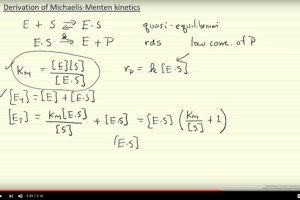 Derivation of Michaelis-Menten kinetics
E + S ⇌ E·S quasi-equilibrium
E·S →k E + P rds low conc. of P
K_M = [E][S] / [E·S] r_p = k [E·S]
[E_T] = [E] + [E·S]
[E_T] = K_M[E·S] / [S] + [E·S] = [E·S] (K_M / [S] + 1)
[E·S]